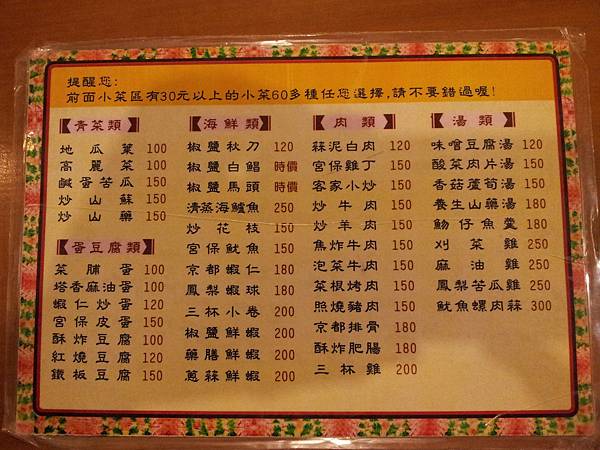 提醒您:
前面小菜區有30元以上的小菜60多種任您選擇,請不要錯過喔!
【青菜類】
地瓜葉 100
高麗菜 100
鹹蛋苦瓜 150
炒山蘇 150
炒山藥 150
【蛋豆腐類】
菜脯蛋 100
塔香麻油蛋 100
蝦仁炒蛋 120
宮保皮蛋 150
酥炸豆腐 100
紅燒豆腐 120
鐵板豆腐 150
【海鮮類】
椒鹽秋刀 120
椒鹽白鯧 時價
椒鹽馬頭 時價
清蒸海鱸魚 250
炒花枝 150
宮保魷魚 150
京都蝦仁 180
鳳梨蝦球 180
三杯小卷 200
椒鹽鮮蝦 200
藥膳鮮蝦 200
蔥蒜鮮蝦 200
【肉類】
蒜泥白肉 120
宮保雞丁 150
客家小炒 150
炒牛肉 150
炒羊肉 150
焦炸牛肉 150
泡菜牛肉 150
菜根烤肉 150
照燒豬肉 150
京都排骨 180
酥炸肥腸 180
三杯雞 200
【湯類】
味噌豆腐湯 120
酸菜肉片湯 150
香菇蘆筍湯 150
養生山藥湯 180
魩仔魚羹 180
刈菜雞 250
麻油雞 250
鳳梨苦瓜雞 250
魷魚螺肉蒜 300